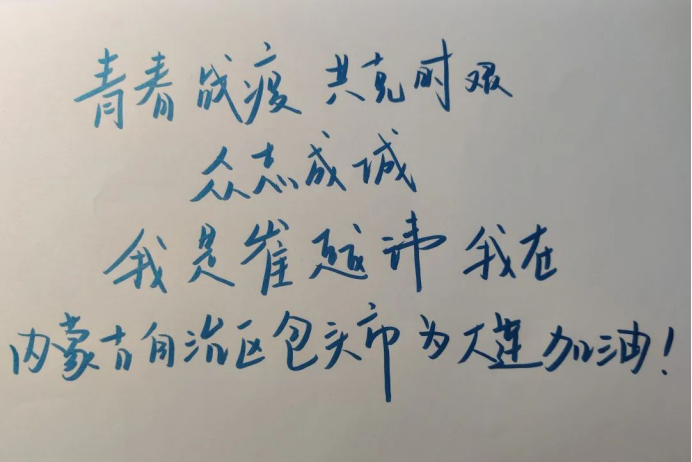 青春战疫 共克时艰
众志成城
我是崔越 我在
内蒙古自治区包头市为大连加油！